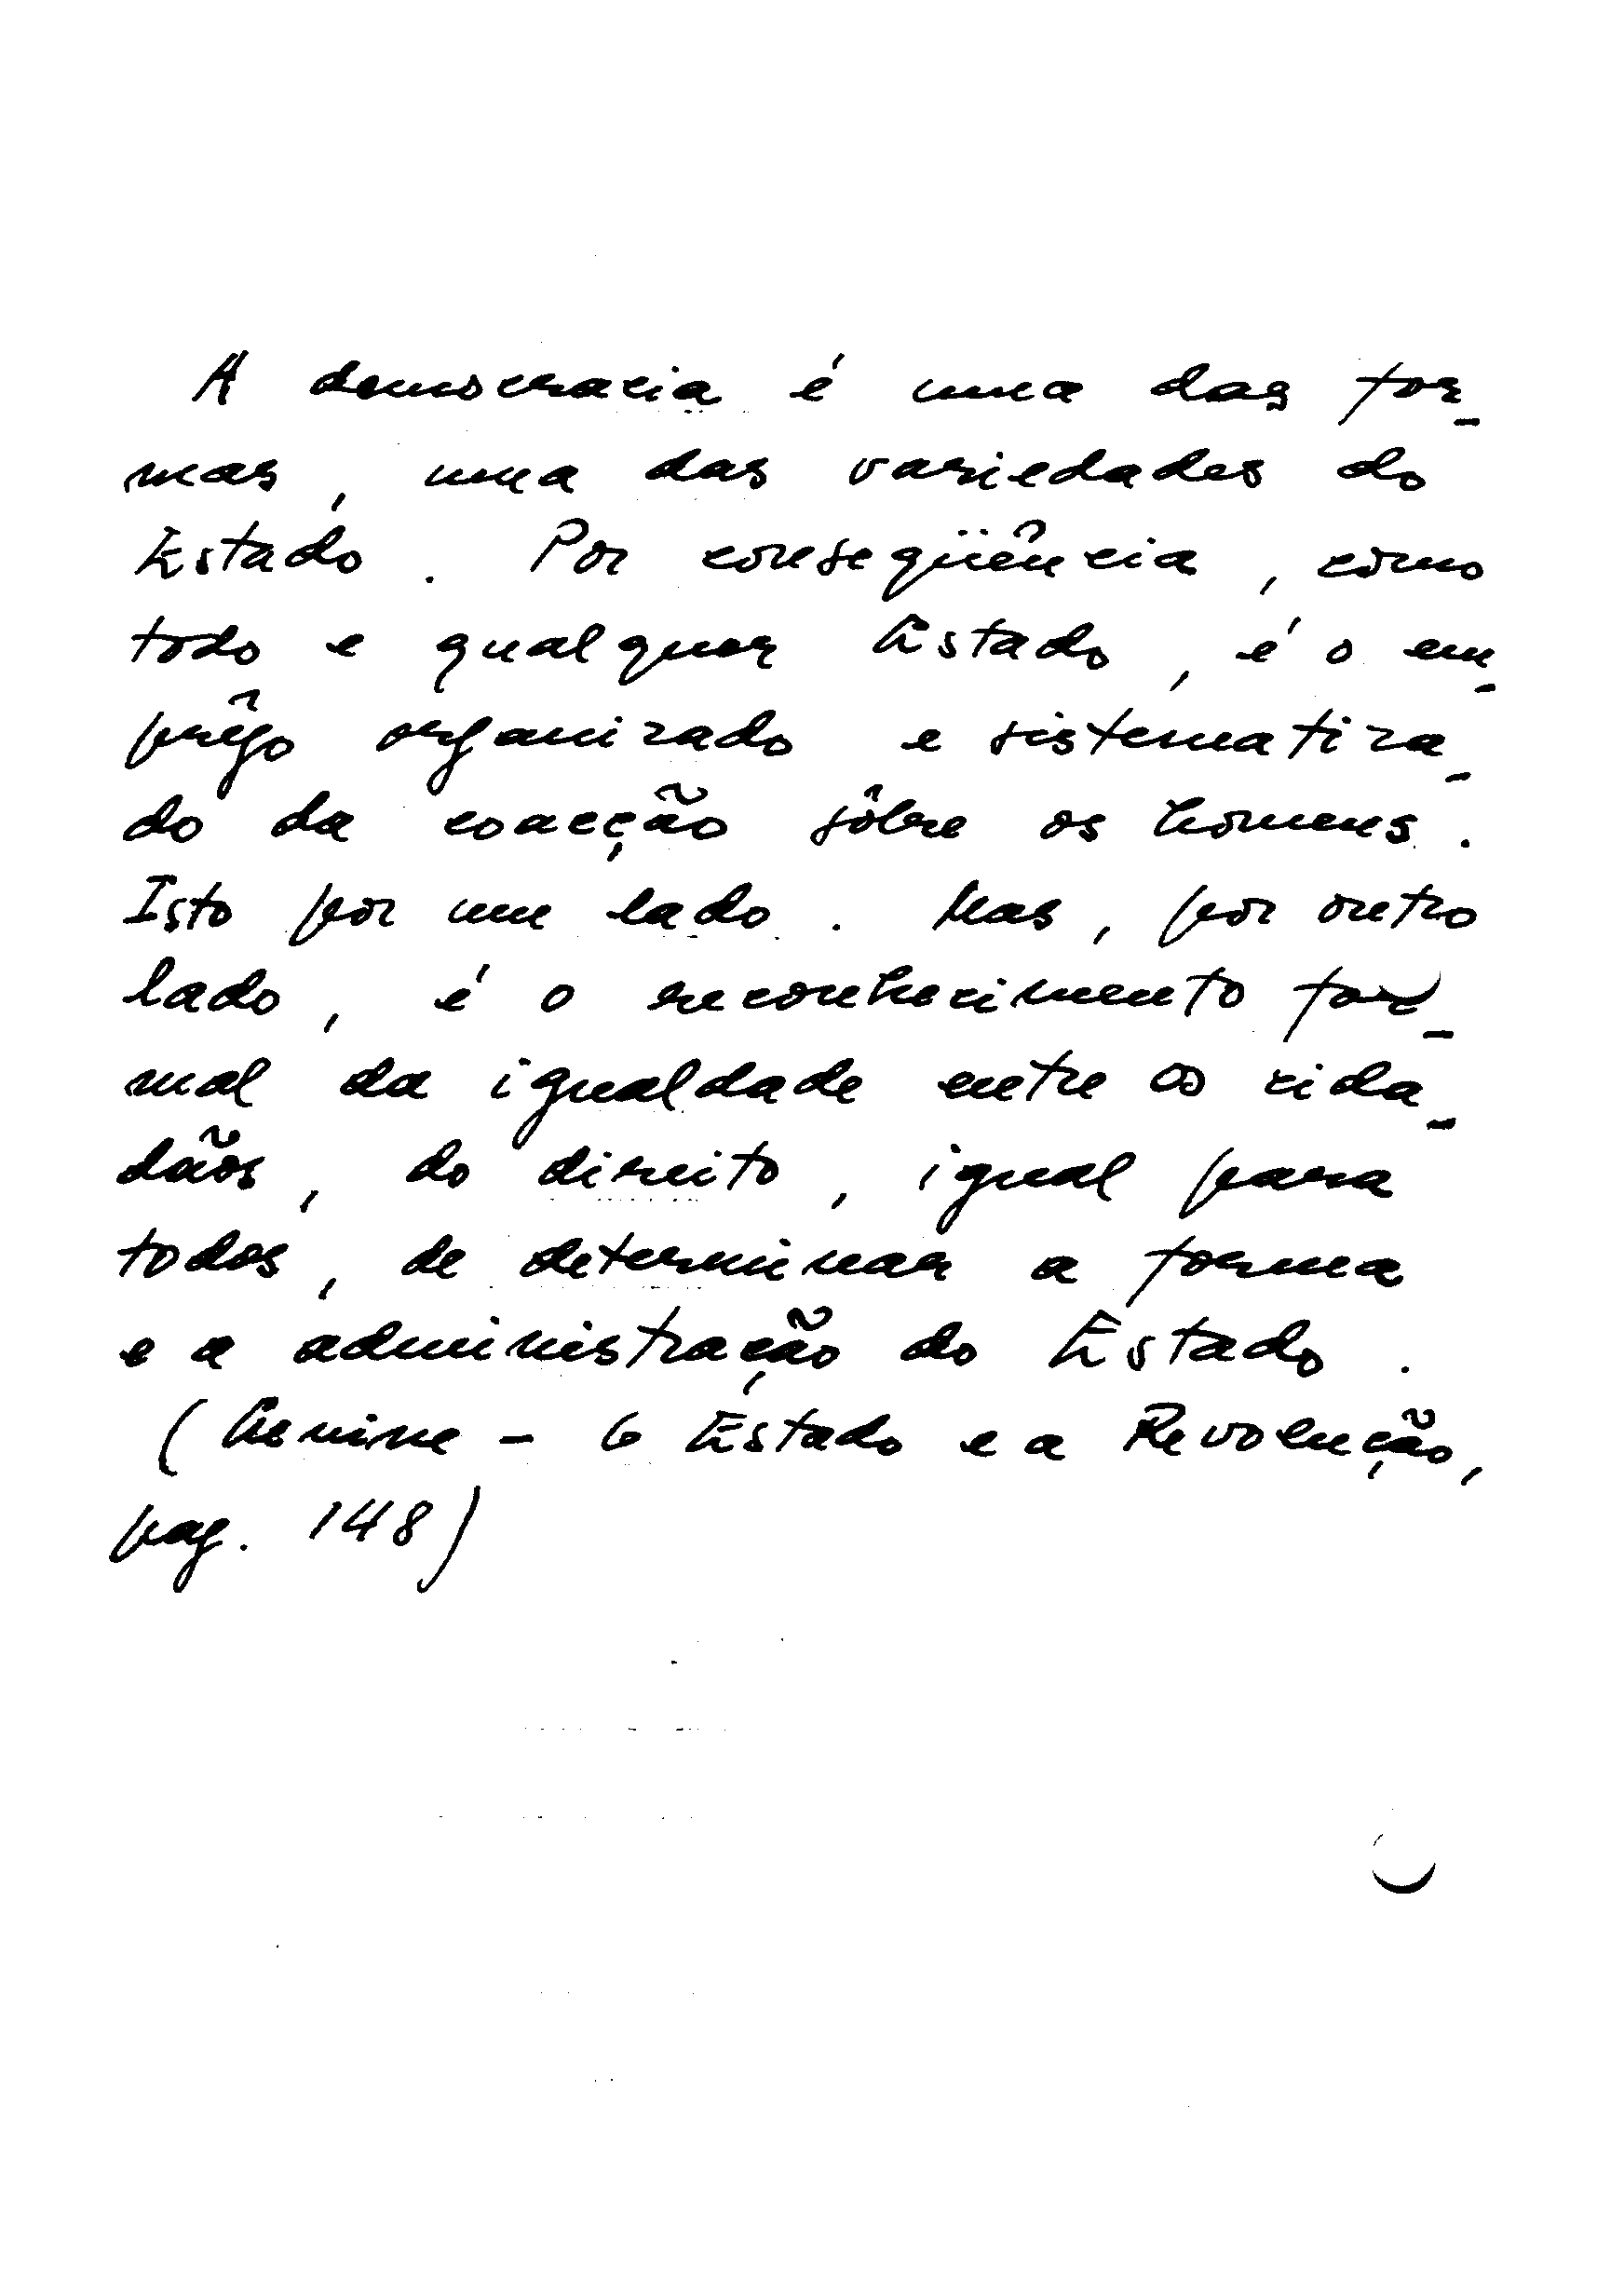 A democracia é uma das for-
mas, uma das variedades do
Estado. Por conseqüência, como
todo e qualquer Estado, é o em-
prêgo organizado e sistematiza-
do da coacção sôbre os homens.
Isto por um lado. Mas, por outro
lado, é o reconhecimento for-
mal da igualdade entre os cida-
dãos, do direito, igual para
todos, de determinar a forma
e a administração do Estado.
(Lenine - O Estado e a Revolução,
pag. 148)